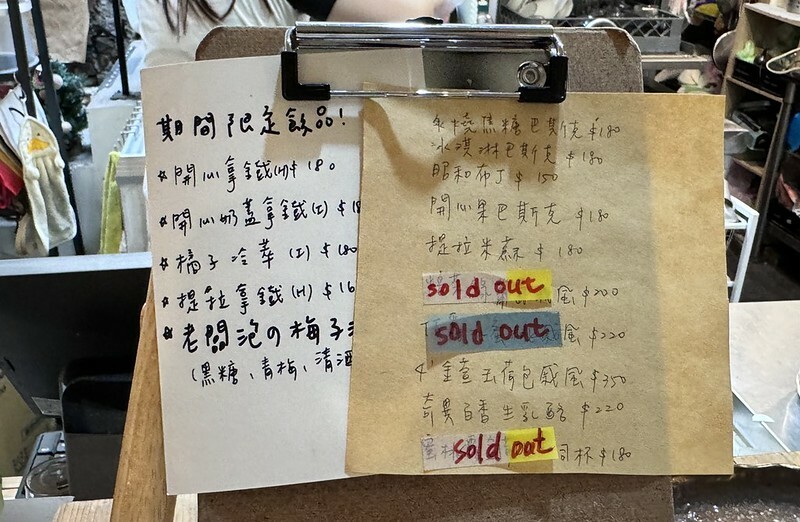 期間限定飲品!
☆開心拿鐵(H)$180
☆開心奶蓋拿鐵(I) $18
☆橘子冷萃 (I) $180
☆提拉拿鐵(H) $16
★老闆泡の梅子
(黑糖、青梅、清酒
燒焦糖巴斯克 $180
冰淇淋巴斯克 $180
昭和布丁 $150
開心果巴斯克 $180
提拉米蘇 $180
sold out 風 $200
sold out 風 $220
4" 金萱玉荷包戚風 $350
奇異百香生乳酪 $220
sold out 杯 $180